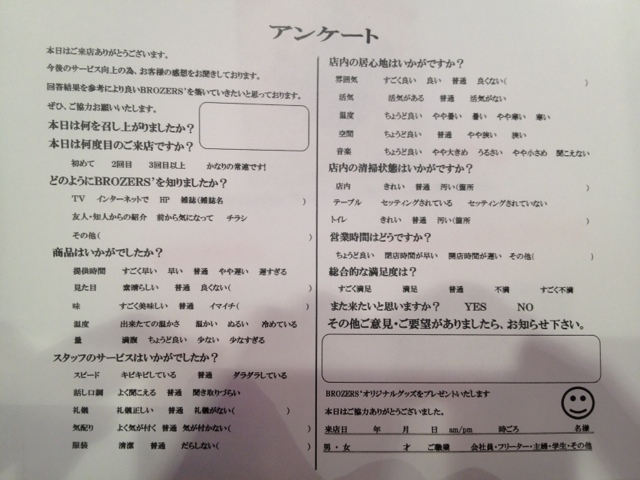 アンケート
本日はご来店ありがとうございます。
今後のサービス向上の為、お客様の感想をお聞きしております。
回答結果を参考により良いBROZERS'を築いていきたいと思っております。
ぜひ、ご協力お願いいたします。
本日は何を召し上がりましたか？
本日は何度目のご来店ですか？
初めて 2回目 3回目以上 かなりの常連です!
どのようにBROZERS'を知りましたか？
TV インターネットで HP 雑誌(雑誌名 )
友人・知人からの紹介 前から気になって チラシ
その他( )
商品はいかがでしたか？
提供時間 すごく早い 早い 普通 やや遅い 遅すぎる
見た目 素晴らしい 普通 良くない( )
味 すごく美味しい 普通 イマイチ( )
温度 出来たての温かさ 温かい ぬるい 冷めている
量 満腹 ちょうど良い 少ない 少なすぎる
スタッフのサービスはいかがでしたか？
スピード キビキビしている 普通 ダラダラしている
話し口調 よく聞こえる 普通 聞き取りづらい
礼儀 礼儀正しい 普通 礼儀がない( )
気配り よく気が付く 普通 気が付かない( )
服装 清潔 普通 だらしない( )
店内の居心地はいかがですか？
雰囲気 すごく良い 良い 普通 良くない( )
活気 活気がある 普通 活気がない
温度 ちょうど良い やや暑い 暑い やや寒い 寒い
空間 ちょうど良い 普通 やや狭い 狭い
音楽 ちょうど良い やや大きめ うるさい やや小さめ 聞こえない
店内の清掃状態はいかがですか？
店内 きれい 普通 汚い(箇所 )
テーブル セッティングされている セッティングされていない
トイレ きれい 普通 汚い(箇所 )
営業時間はどうですか？
ちょうど良い 閉店時間が早い 開店時間が遅い その他( )
総合的な満足度は？
すごく満足 満足 普通 不満 すごく不満
また来たいと思いますか？ YES NO
その他ご意見・ご要望がありましたら、お知らせ下さい。
BROZERS'オリジナルグッズをプレゼントいたします
本日はご協力ありがとうございました。
来店日 年 月 日 am/pm 時ごろ 名様
男・女 才 ご職業 会社員・フリーター・主婦・学生・その他